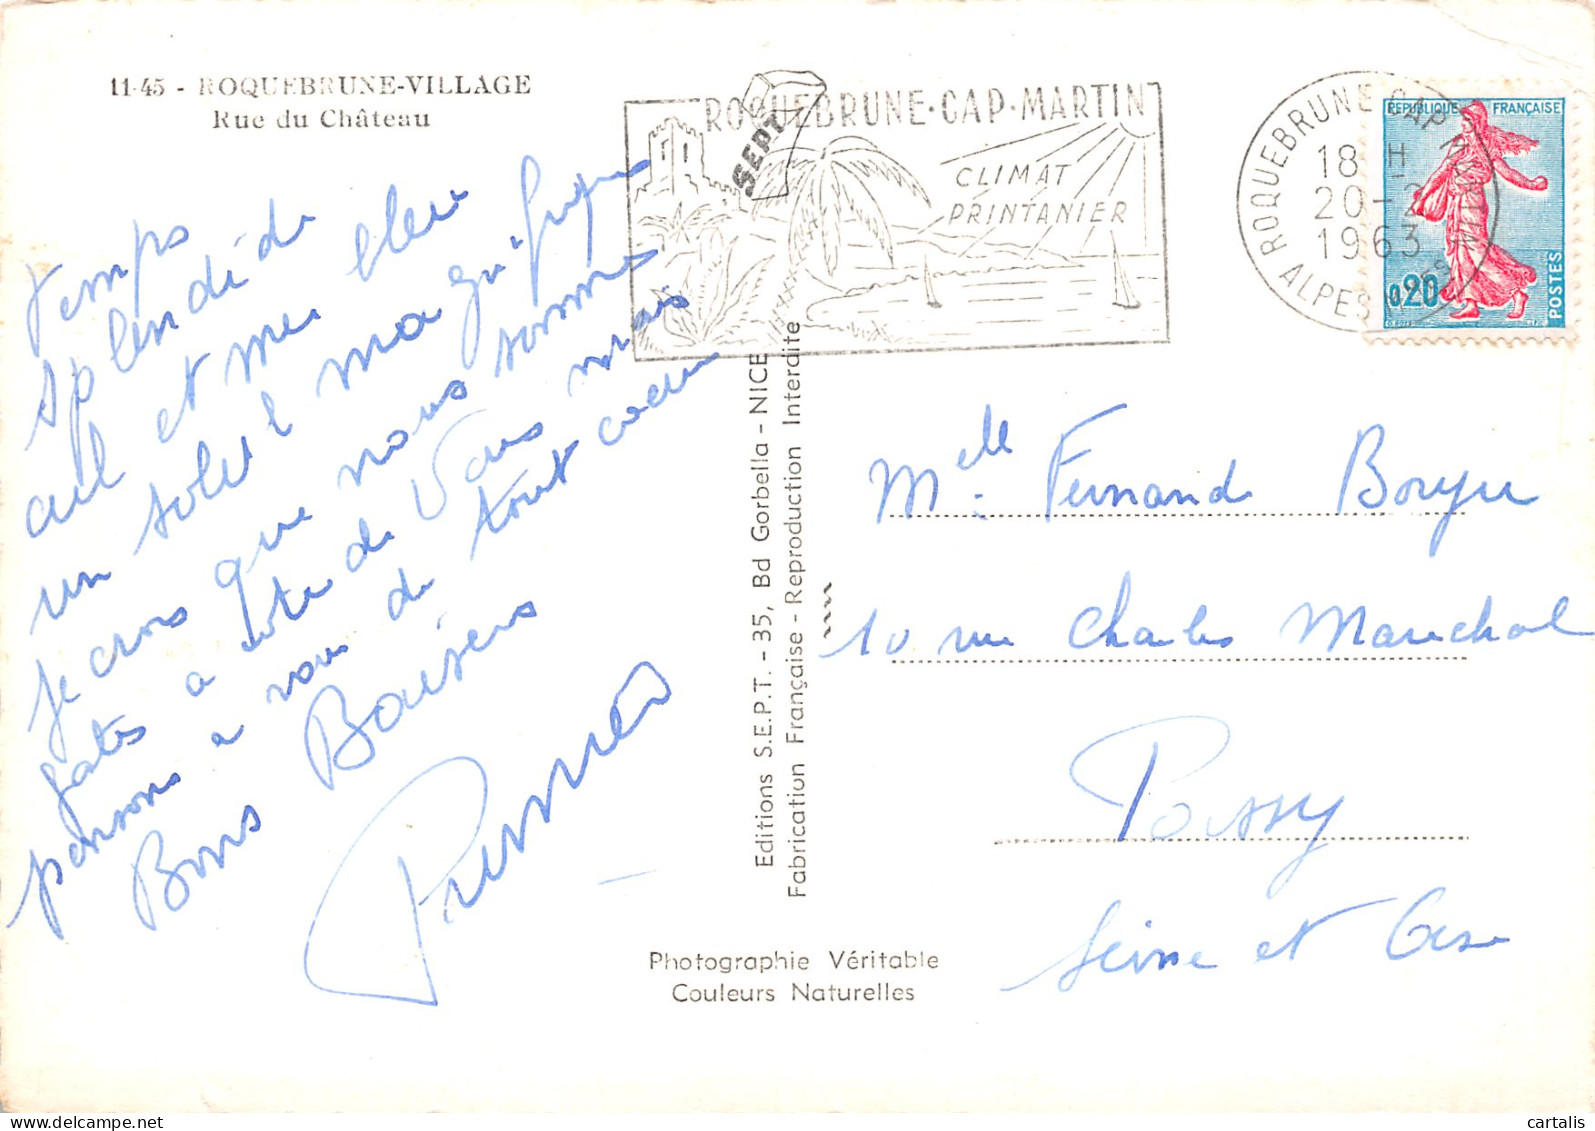 11-45 - ROQUEBRUNE-VILLAGE
Rue du Château
ROQUEBRUNE-CAP-MARTIN
SEPT
CLIMAT
PRINTANIER
ROQUEBRUNE CAP MARTIN
18 H
20-2
1963
ALPES Mmes
REPUBLIQUE FRANÇAISE
0,20
POSTES
Temps
splendide
ciel et mer bleu
un soleil magnifique
je crois que nous sommes
gatés a coté de Vous mais
pensons a vous de tout coeur
Bons Baisers
Editions S.E.P.T. - 35, Bd Gorbella - NICE
Fabrication Française - Reproduction Interdite
Melle. Fernande
10 rue Charles Marechal
Poissy
Seine et Oise
Photographie Véritable
Couleurs Naturelles
cartalis